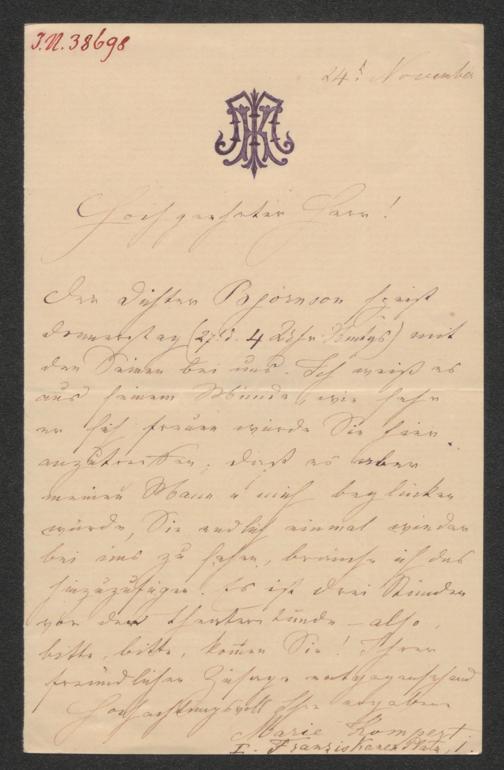 I.N. 38698
24t. November
MK
Hochgeehrter Herr!
Der Dichter Bjørnson speist
Donnerstag (27. d. 4 Uhr Nmtgs) mit
den Seinen bei uns. Ich weiß es
aus seinem Munde, wie sehr
er sich freuen würde Sie hier
anzutreffen; daß es aber
meinen Mann u mich beglücken
würde, Sie endlich einmal wieder
bei uns zu sehen, brauche ich das
hinzuzufügen. Es ist drei Stunden
vor der Theaterstunde – also,
bitte, bitte, kom̅en Sie! Ihrer
freundlichen Zusage entgegensehend
Hochachtungsvoll Ihre ergebene
Marie Kompert
I. Franziskanerplatz, 1.